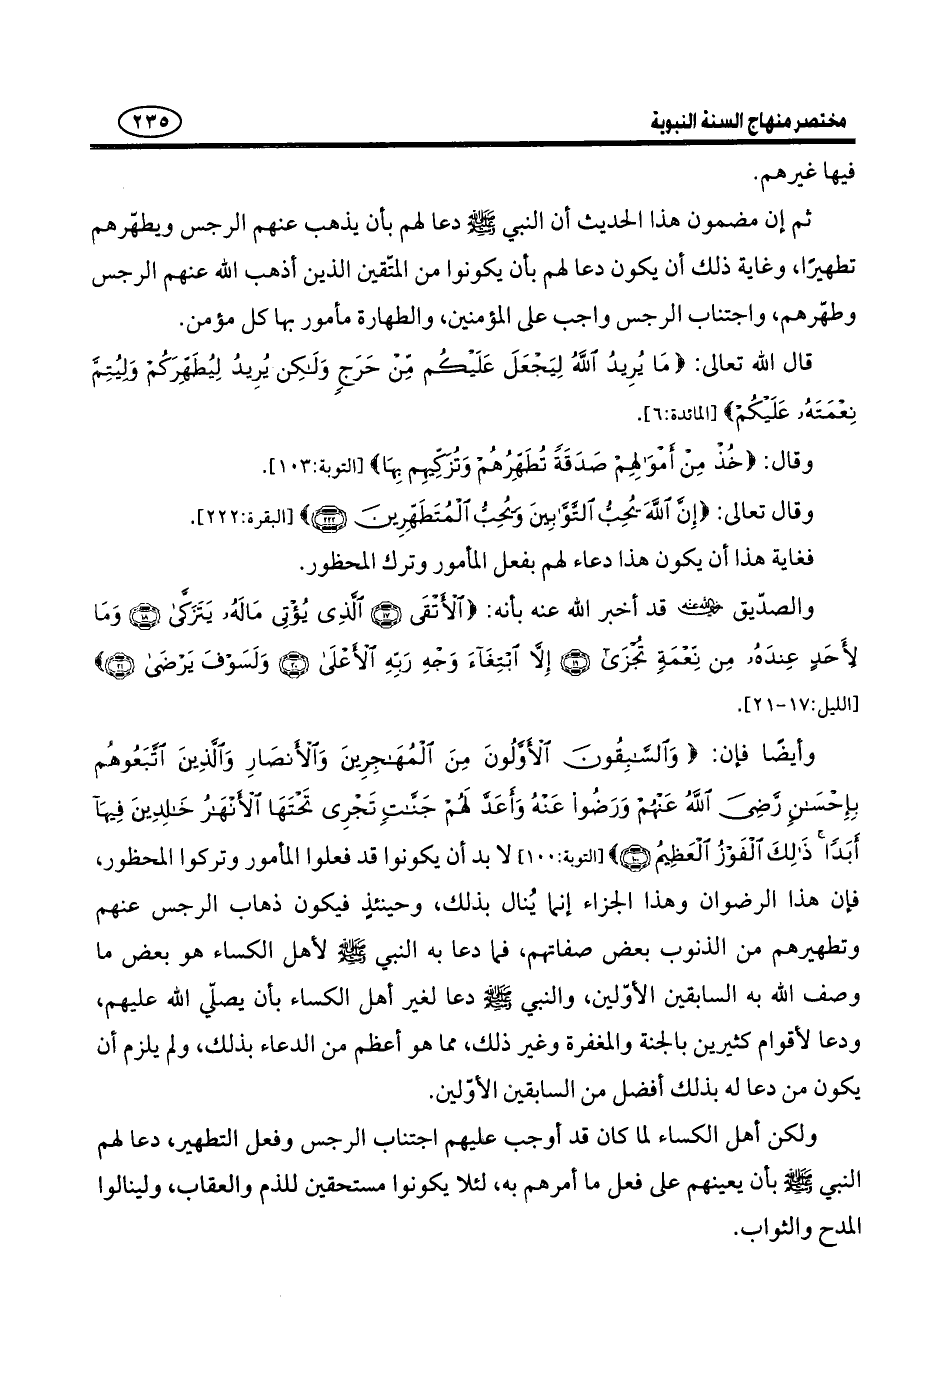 مختصر منهاج السنة النبوية ٢٣٥
فيها غيرهم.
ثم إن مضمون هذا الحديث أن النبي ﷺ دعا لهم بأن يذهب عنهم الرجس ويطهّرهم
تطهيرًا، وغاية ذلك أن يكون دعا لهم بأن يكونوا من المتّقين الذين أذهب الله عنهم الرجس
وطهّرهم، واجتناب الرجس واجب على المؤمنين، والطهارة مأمور بها كل مؤمن.
قال الله تعالى: ﴿ مَا يُرِيدُ ٱللَّهُ لِيَجْعَلَ عَلَيْكُم مِّنْ حَرَجٍ وَلَـٰكِن يُرِيدُ لِيُطَهِّرَكُمْ وَلِيُتِمَّ
نِعْمَتَهُۥ عَلَيْكُمْ﴾ [المائدة:٦].
وقال: ﴿خُذْ مِنْ أَمْوَٰلِهِمْ صَدَقَةً تُطَهِّرُهُمْ وَتُزَكِّيهِم بِهَا﴾ [التوبة:١٠٣].
وقال تعالى: ﴿إِنَّ ٱللَّهَ يُحِبُّ ٱلتَّوَّٰبِينَ وَيُحِبُّ ٱلْمُتَطَهِّرِينَ ٢٢٢﴾ [البقرة:٢٢٢].
فغاية هذا أن يكون هذا دعاء لهم بفعل المأمور وترك المحظور.
والصدّيق رضي الله عنه قد أخبر الله عنه بأنه: ﴿ٱلْأَتْقَى ١٧ ٱلَّذِى يُؤْتِى مَالَهُۥ يَتَزَكَّىٰ ١٨ وَمَا
لِأَحَدٍ عِندَهُۥ مِن نِّعْمَةٍ تُجْزَىٰٓ ١٩ إِلَّا ٱبْتِغَآءَ وَجْهِ رَبِّهِ ٱلْأَعْلَىٰ ٢٠ وَلَسَوْفَ يَرْضَىٰ ٢١﴾
[الليل:١٧-٢١].
وأيضًا فإن: ﴿ وَٱلسَّـٰبِقُونَ ٱلْأَوَّلُونَ مِنَ ٱلْمُهَـٰجِرِينَ وَٱلْأَنصَارِ وَٱلَّذِينَ ٱتَّبَعُوهُم
بِإِحْسَـٰنٍ رَّضِىَ ٱللَّهُ عَنْهُمْ وَرَضُوا۟ عَنْهُ وَأَعَدَّ لَهُمْ جَنَّـٰتٍ تَجْرِى تَحْتَهَا ٱلْأَنْهَـٰرُ خَـٰلِدِينَ فِيهَآ
أَبَدًا ۚ ذَٰلِكَ ٱلْفَوْزُ ٱلْعَظِيمُ ١٠٠﴾ [التوبة:١٠٠] لا بد أن يكونوا قد فعلوا المأمور وتركوا المحظور،
فإن هذا الرضوان وهذا الجزاء إنما يُنال بذلك، وحينئذٍ فيكون ذهاب الرجس عنهم
وتطهيرهم من الذنوب بعض صفاتهم، فما دعا به النبي ﷺ لأهل الكساء هو بعض ما
وصف الله به السابقين الأوّلين، والنبي ﷺ دعا لغير أهل الكساء بأن يصلّي الله عليهم،
ودعا لأقوام كثيرين بالجنة والمغفرة وغير ذلك، مما هو أعظم من الدعاء بذلك، ولم يلزم أن
يكون من دعا له بذلك أفضل من السابقين الأوّلين.
ولكن أهل الكساء لما كان قد أوجب عليهم اجتناب الرجس وفعل التطهير، دعا لهم
النبي ﷺ بأن يعينهم على فعل ما أمرهم به، لئلا يكونوا مستحقين للذم والعقاب، ولينالوا
المدح والثواب.